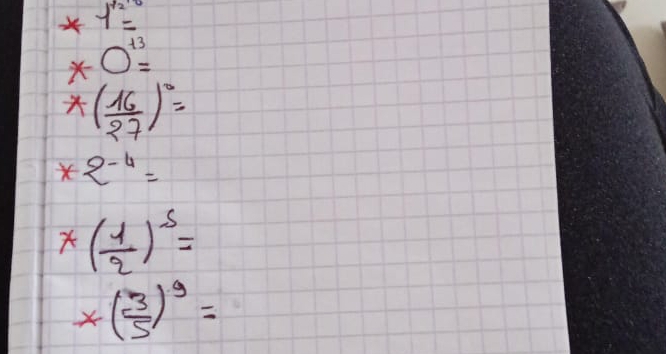 * 1 =
* 0¹³ =
* (16/27)⁰ =
* 2⁻⁴ =
* (1/2)⁻⁵ =
* (-3/5)⁻⁹ =